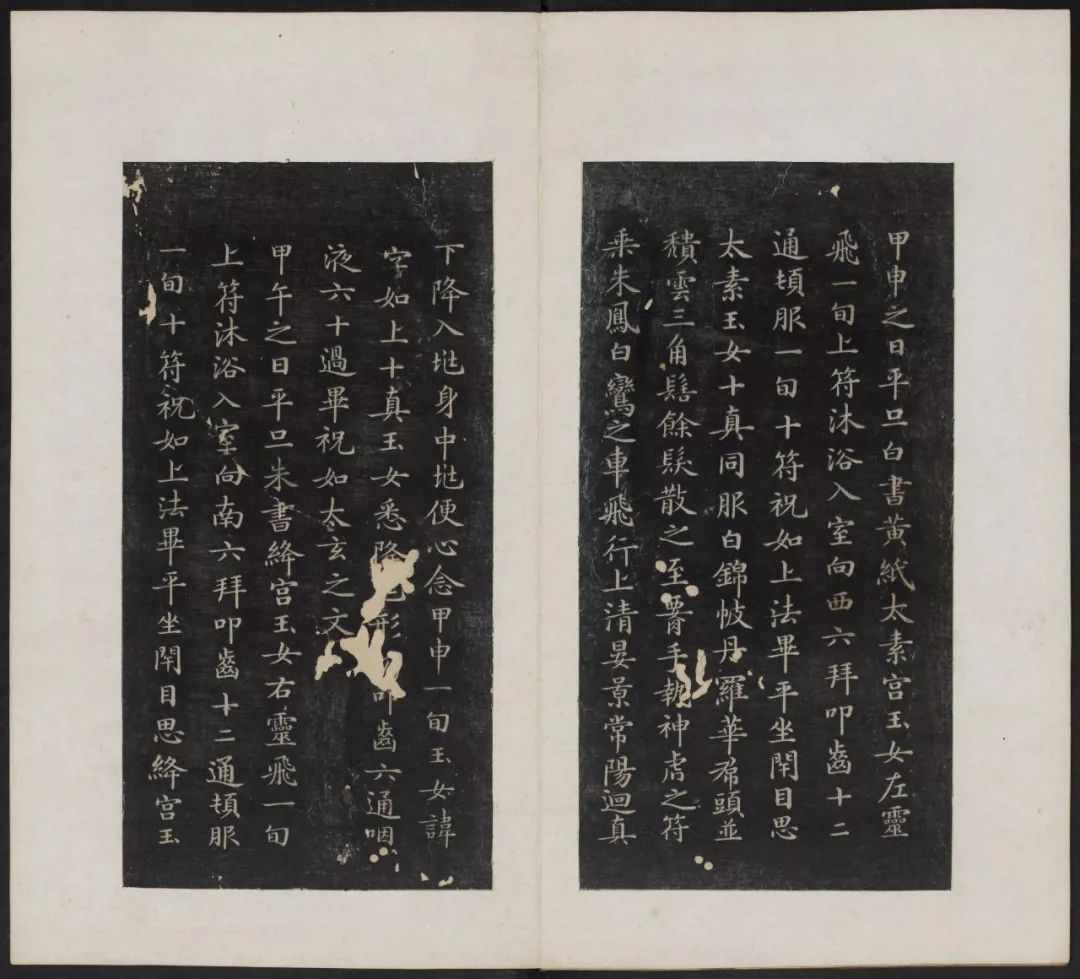 甲申之日平旦白書黃紙太素宫玉女左靈
飛一旬上符沐浴入室向西六拜叩齒十二
通頓服一旬十符祝如上法畢平坐閇目思
太素玉女十真同服白錦帔丹羅華帬頭並
穨雲三角髻餘髮散之至署手執神虎之符
乘朱鳳白鸞之車飛行上清晏景常陽迴真
下降入㘴身中㘴便心念甲申一旬玉女諱
字如上十真玉女悉降形叩齒六通咽
液六十過畢祝如太玄之文
甲午之日平旦朱書絳宫玉女右靈飛一旬
上符沐浴入室向南六拜叩齒十二通頓服
一旬十符祝如上法畢平坐閇目思絳宫玉